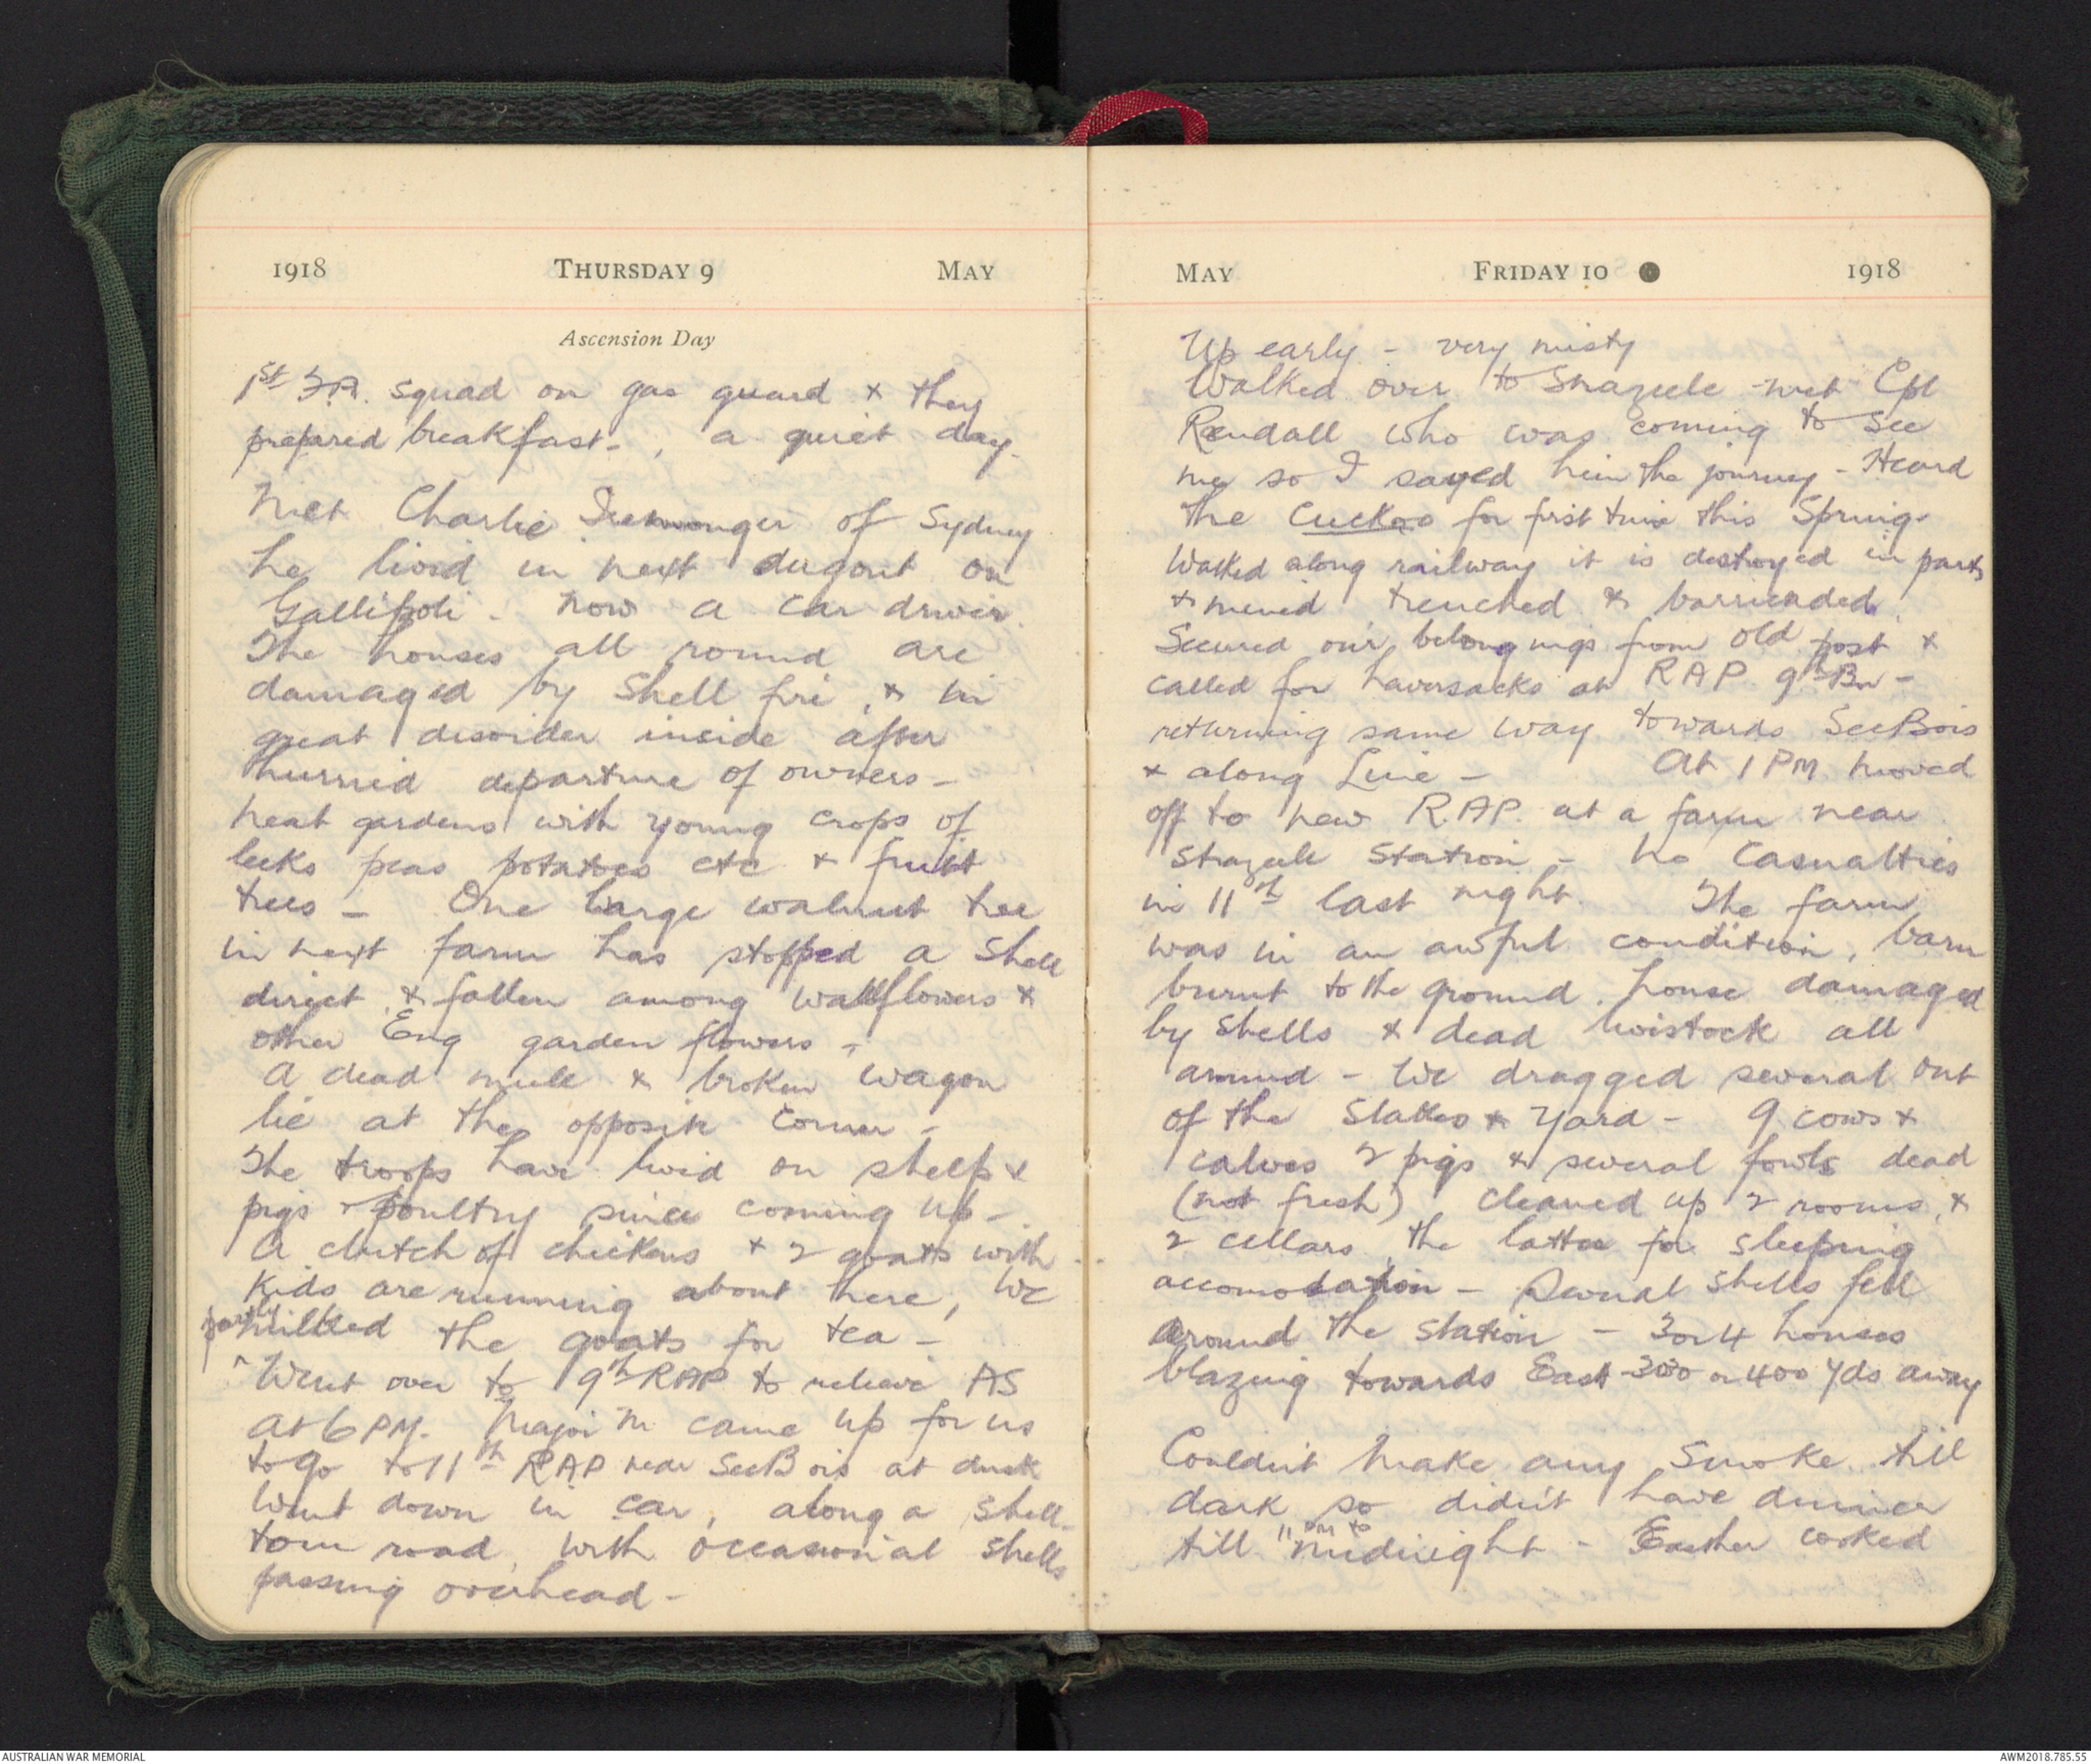 1918 THURSDAY 9 MAY
Ascension Day
1st F.A. squad on gas guard & they
prepared breakfast - , a quiet day.
Met Charlie Iremonger of Sydney
he lived in next dugout on
Gallipoli - now a car driver.
The houses all round are
damaged by shell fire, & in
great disorder inside after
hurried departure of owners -
neat gardens with young crops of
leeks peas potatoes etc & fruit
trees - One large walnut tree
in next farm has stopped a shell
direct & fallen among wallflowers &
other Eng garden flowers -
A dead mule & broken wagon
lie at the opposite corner -
The troops have lived on sheep &
pigs & poultry since coming up -
A clutch of chickens & 2 goats with
kids are running about here, We
partly milked the goats for tea -
Went over to 9th RAP to relieve AS
at 6 PM. Major M came up for us
to go to 11th RAP near SecBois at dusk
Went down in car, along a shell-
torn road, with occasional shells
passing overhead -
MAY FRIDAY 10 1918
Up early - very misty
Walked over to Strazeele - met Cpl
Rendall who was coming to see
me so I saved him the journey - Heard
the Cuckoo for first time this Spring.
Walked along railway it is destroyed in parts
& mined trenched & barricaded.
Secured our belongings from old post &
called for haversacks at RAP 9th Bn -
returning same way towards SecBois
& along Line - At 1 PM moved
off to new R.A.P. at a farm near
Strazeele Station - no casualties
in 11th last night. The farm
was in an awful condition, barn
burnt to the ground, house damaged
by shells & dead livestock all
around - We dragged several out
of the stables & yard - 9 cows &
calves 2 pigs & several fowls dead
(not fresh), cleaned up 2 rooms, &
2 cellars, the latter for sleeping
accomodation - Several shells fell
around the station - 3 or 4 houses
blazing towards East - 300 or 400 yds away
Couldn't make any smoke till
dark so didn't have dinner
till 11 PM to midnight - Easther cooked
AUSTRALIAN WAR MEMORIAL
AWM2018.785.55